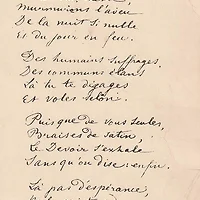 Murmurons l'aveu
De la nuit si nulle
Et du jour en feu.
Des humains suffrages,
Des communs élans
Là tu te dégages
Et voles selon.
Puisque de vous seules,
Braises de satin,
Le Devoir s'exhale
Sans qu'on dise : enfin.
Là pas d'espérance,